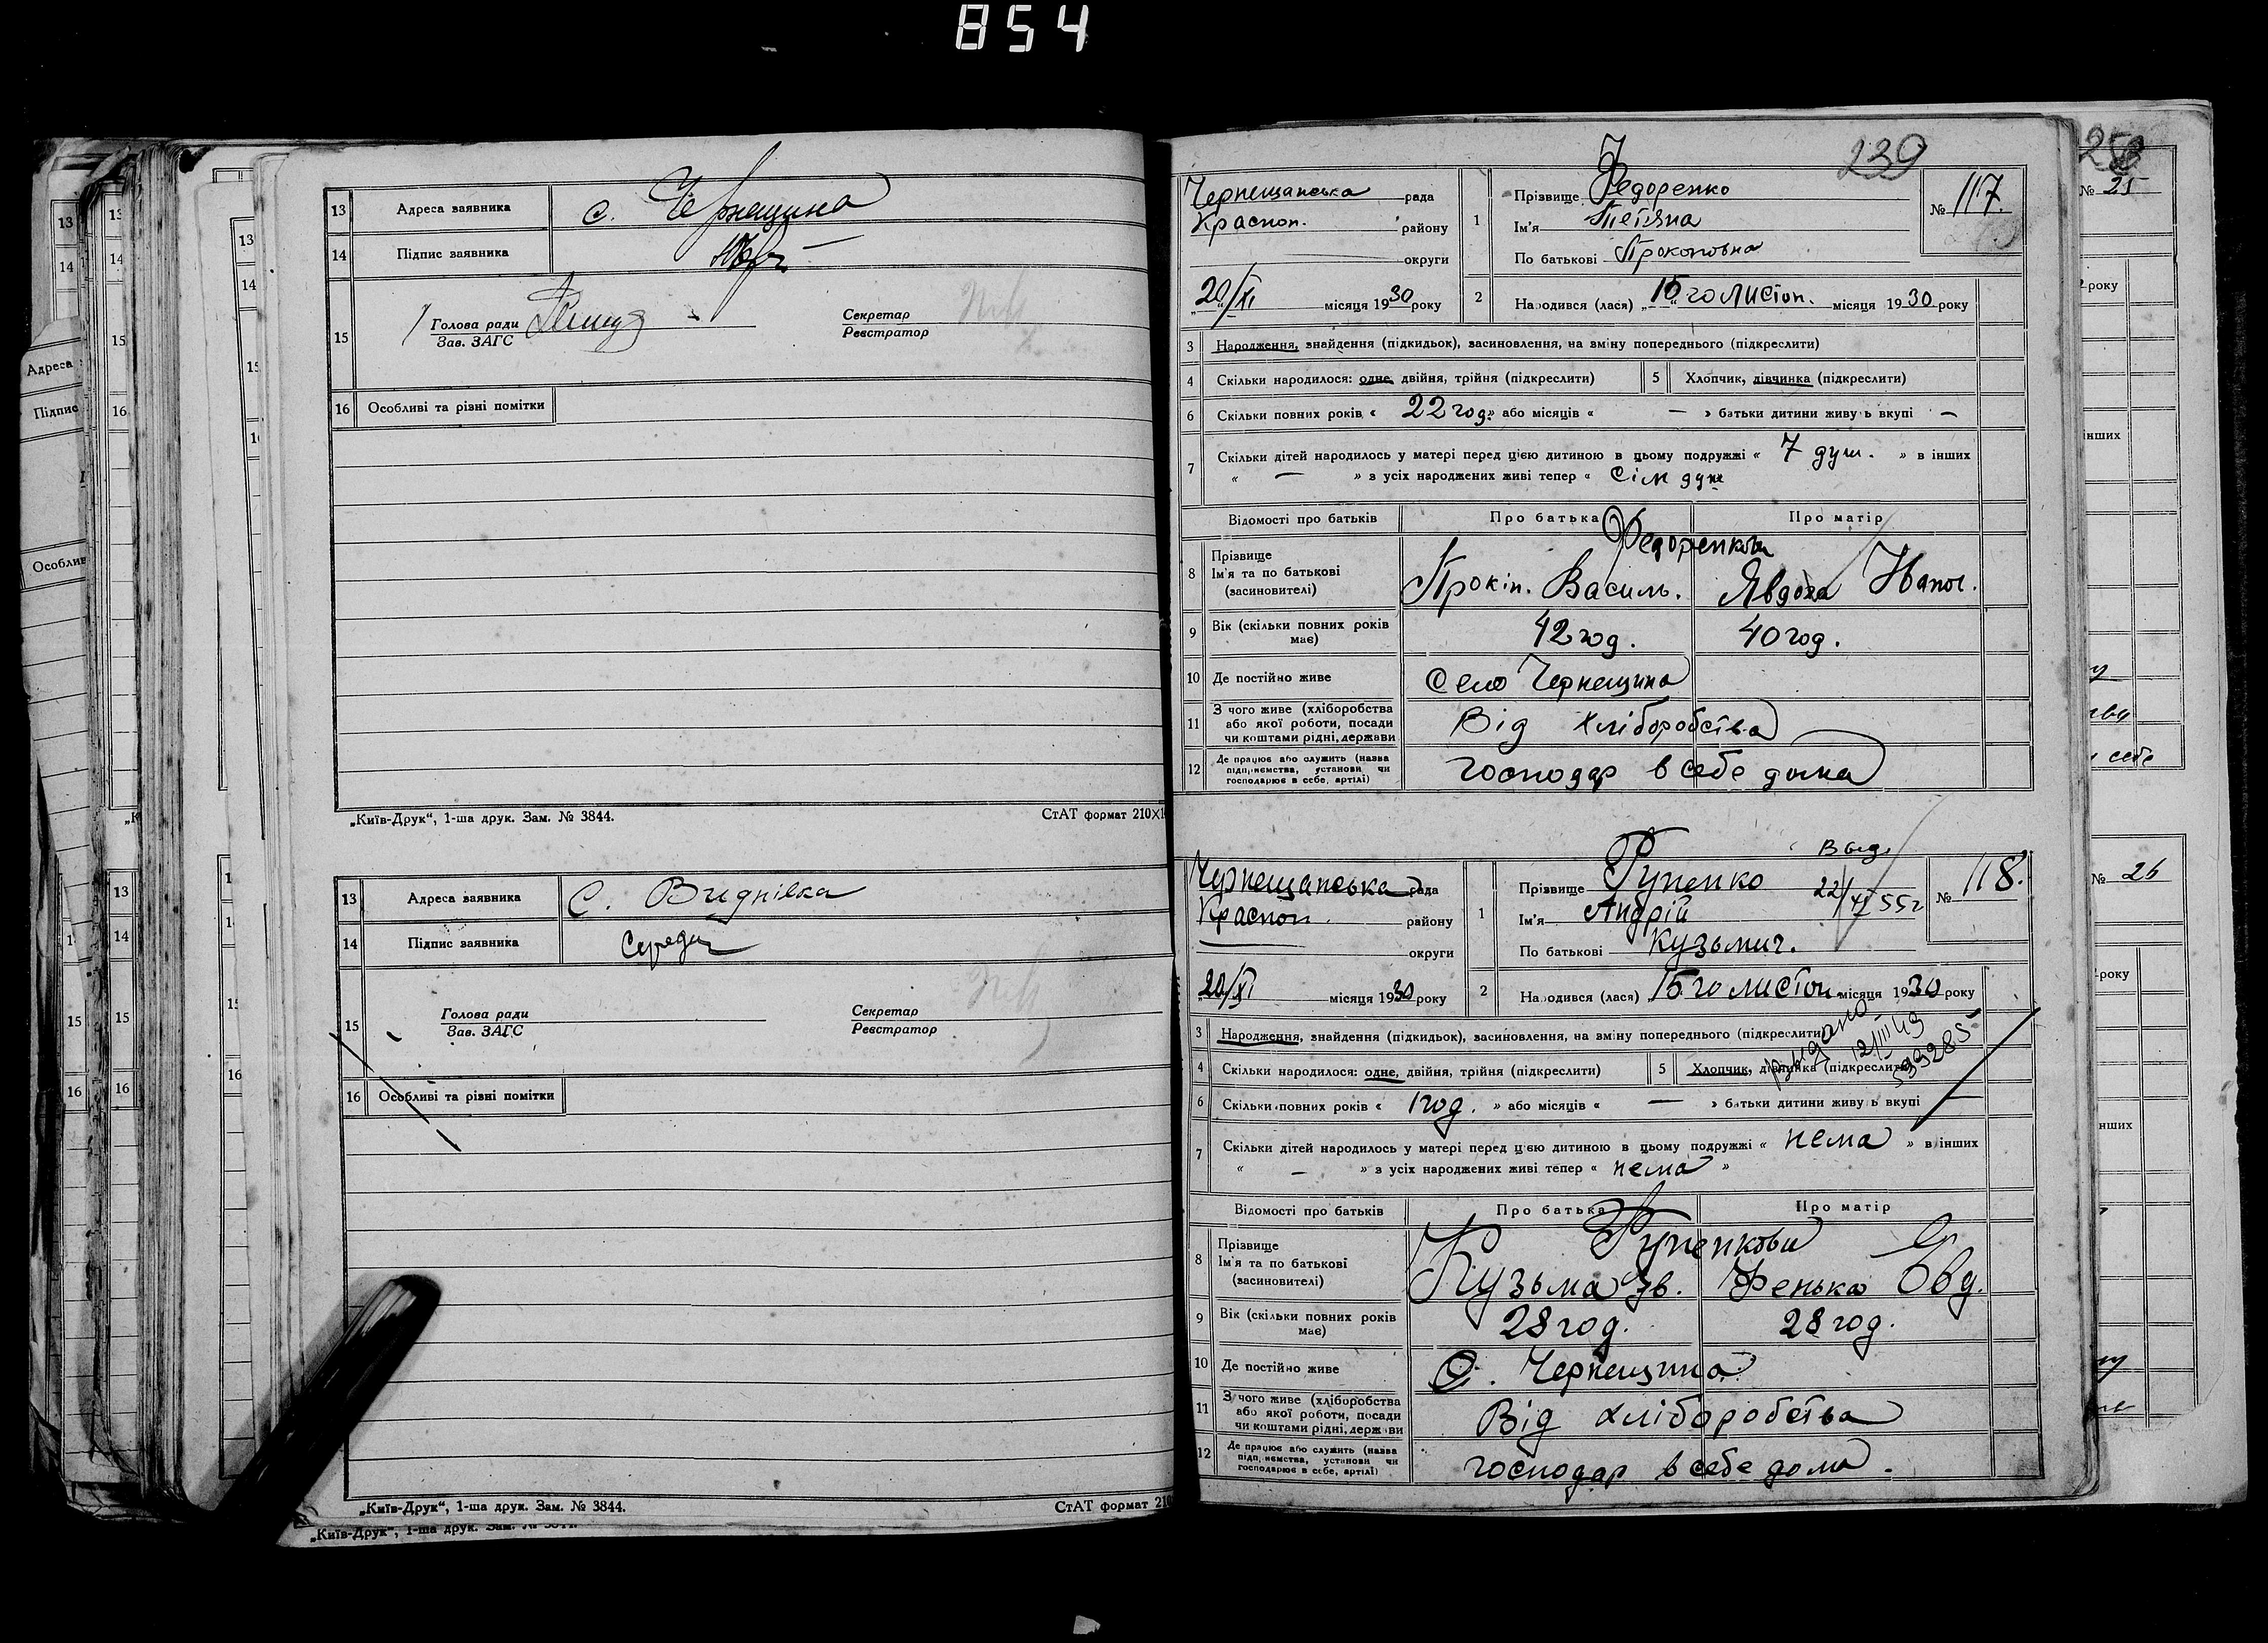 854
13 Адреса заявника с. Чернещина
14 Підпис заявника
15 Голова ради
Зав. ЗАГС
Секретар
Реєстратор
16 Особливі та різні помітки
„Київ-Друк“, 1-ша друк. Зам. № 3844. СтАТ формат 210×1
13 Адреса заявника С.
14 Підпис заявника
15 Голова ради
Зав. ЗАГС
Секретар
Реєстратор
16 Особливі та різні помітки
„Київ-Друк“, 1-ша друк. Зам. № 3844. СтАТ формат 210
„Київ-Друк“, 1-ша друк. Зам.
239
Чернещанська рада
Красноп. району
округи
„20/XI місяця 1930 року
1 Прізвище Федоренко
Ім'я Тетяна
По батькові Прокоповна
№ 117.
2 Народився (лася) „15го листоп. місяця 1930 року
3 Народження, знайдення (підкидьок), засиновлення, на зміну попереднього (підкреслити)
4 Скільки народилося: одне, двійня, трійня (підкреслити) 5 Хлопчик, дівчинка (підкреслити)
6 Скільки повних років « 22 год. » або місяців « — » батьки дитини живуть вкупі —
7 Скільки дітей народилось у матері перед цією дитиною в цьому подружжі « 7 душ. » в інших
« — » з усіх народжених живі тепер « сім душ
Відомості про батьків Про батька Про матір
Федоренкови
8 Прізвище
Ім'я та по батькові
(засиновителі)
Прокіп. Василь. Явдоха Іванов.
9 Вік (скільки повних років має) 42 год. 40 год.
10 Де постійно живе Село Чернещина
11 З чого живе (хліборобства
або якої роботи, посади
чи коштами рідні, держави
Від хліборобства
12 Де працює або служить (назва
підприємства, установи чи
господарює в себе, артілі)
господар в себе дома
Чернещанська рада
Красноп. району
округи
„20/XI місяця 1930 року
Выд.
22/XI 55 г
1 Прізвище Руненко
Ім'я Андрій
По батькові Кузьмич.
№ 118.
2 Народився (лася) 15го листоп. місяця 1930 року
3 Народження, знайдення (підкидьок), засиновлення, на зміну попереднього (підкреслити)
выдано
12/III 49
599285
4 Скільки народилося: одне, двійня, трійня (підкреслити) 5 Хлопчик, дівчинка (підкреслити)
6 Скільки повних років « 1 год. » або місяців « — » батьки дитини живуть вкупі —
7 Скільки дітей народилось у матері перед цією дитиною в цьому подружжі « нема » в інших
« — » з усіх народжених живі тепер « нема »
Відомості про батьків Про батька Про матір
Руненкови
8 Прізвище
Ім'я та по батькові
(засиновителі)
Кузьма Ів. Фенька Овд.
9 Вік (скільки повних років має) 28 год. 28 год.
10 Де постійно живе С. Чернещина
11 З чого живе (хліборобства
або якої роботи, посади
чи коштами рідні, держави
Від хліборобства
12 Де працює або служить (назва
підприємства, установи чи
господарює в себе, артілі)
господар в себе дома.
№ 25
року
інших
себе
№ 26
року
нших